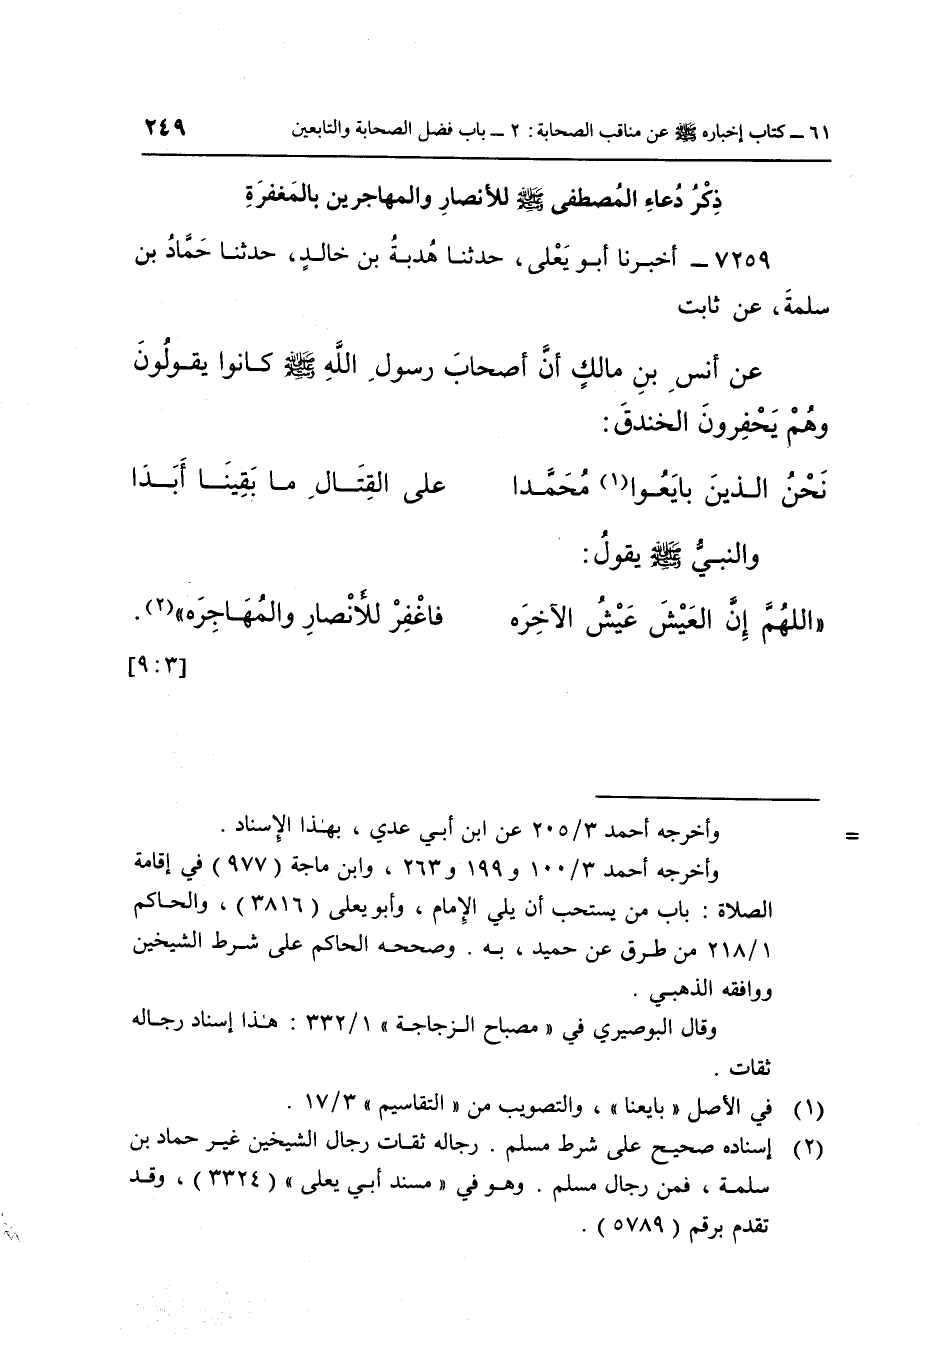 ٦١ ـ كتاب إخباره ﷺ عن مناقب الصحابة: ٢ ـ باب فضل الصحابة والتابعين ٢٤٩
ذِكْرُ دُعاءِ المُصطفى ﷺ للأنصارِ والمهاجرين بالمَغفرَةِ
٧٢٥٩ ـ أخبرنا أبو يَعْلى، حدثنا هُدبةُ بن خالدٍ، حدثنا حَمَّادُ بن
سلمةَ، عن ثابت
عن أنسِ بنِ مالكٍ أنَّ أصحابَ رسولِ اللَّهِ ﷺ كانوا يقولُونَ
وهُمْ يَحْفِرونَ الخندقَ:
نَحْنُ الذينَ بايَعُوا(١) مُحَمَّدا على القِتَالِ ما بَقِينَا أَبَدَا
والنبيُّ ﷺ يقولُ:
«اللهُمَّ إِنَّ العَيْشَ عَيْشُ الآخِرَه فاغْفِرْ للأَنْصارِ والمُهَاجِرَه»(٢).
[٣: ٩]
= وأخرجه أحمد ٢٠٥/٣ عن ابن أبي عدي ، بهٰذا الإِسناد .
وأخرجه أحمد ١٠٠/٣ و ١٩٩ و ٢٦٣ ، وابن ماجة (٩٧٧) في إقامة
الصلاة : باب من يستحب أن يلي الإِمام ، وأبو يعلى (٣٨١٦) ، والحاكم
٢١٨/١ من طرق عن حميد ، به . وصححه الحاكم على شرط الشيخين
ووافقه الذهبي .
وقال البوصيري في «مصباح الزجاجة» ٣٣٢/١ : هٰذا إسناد رجاله
ثقات .
(١) في الأصل «بايعنا» ، والتصويب من «التقاسيم» ١٧/٣ .
(٢) إسناده صحيح على شرط مسلم . رجاله ثقات رجال الشيخين غير حماد بن
سلمة ، فمن رجال مسلم . وهو في «مسند أبي يعلى» (٣٣٢٤) ، وقد
تقدم برقم (٥٧٨٩) .